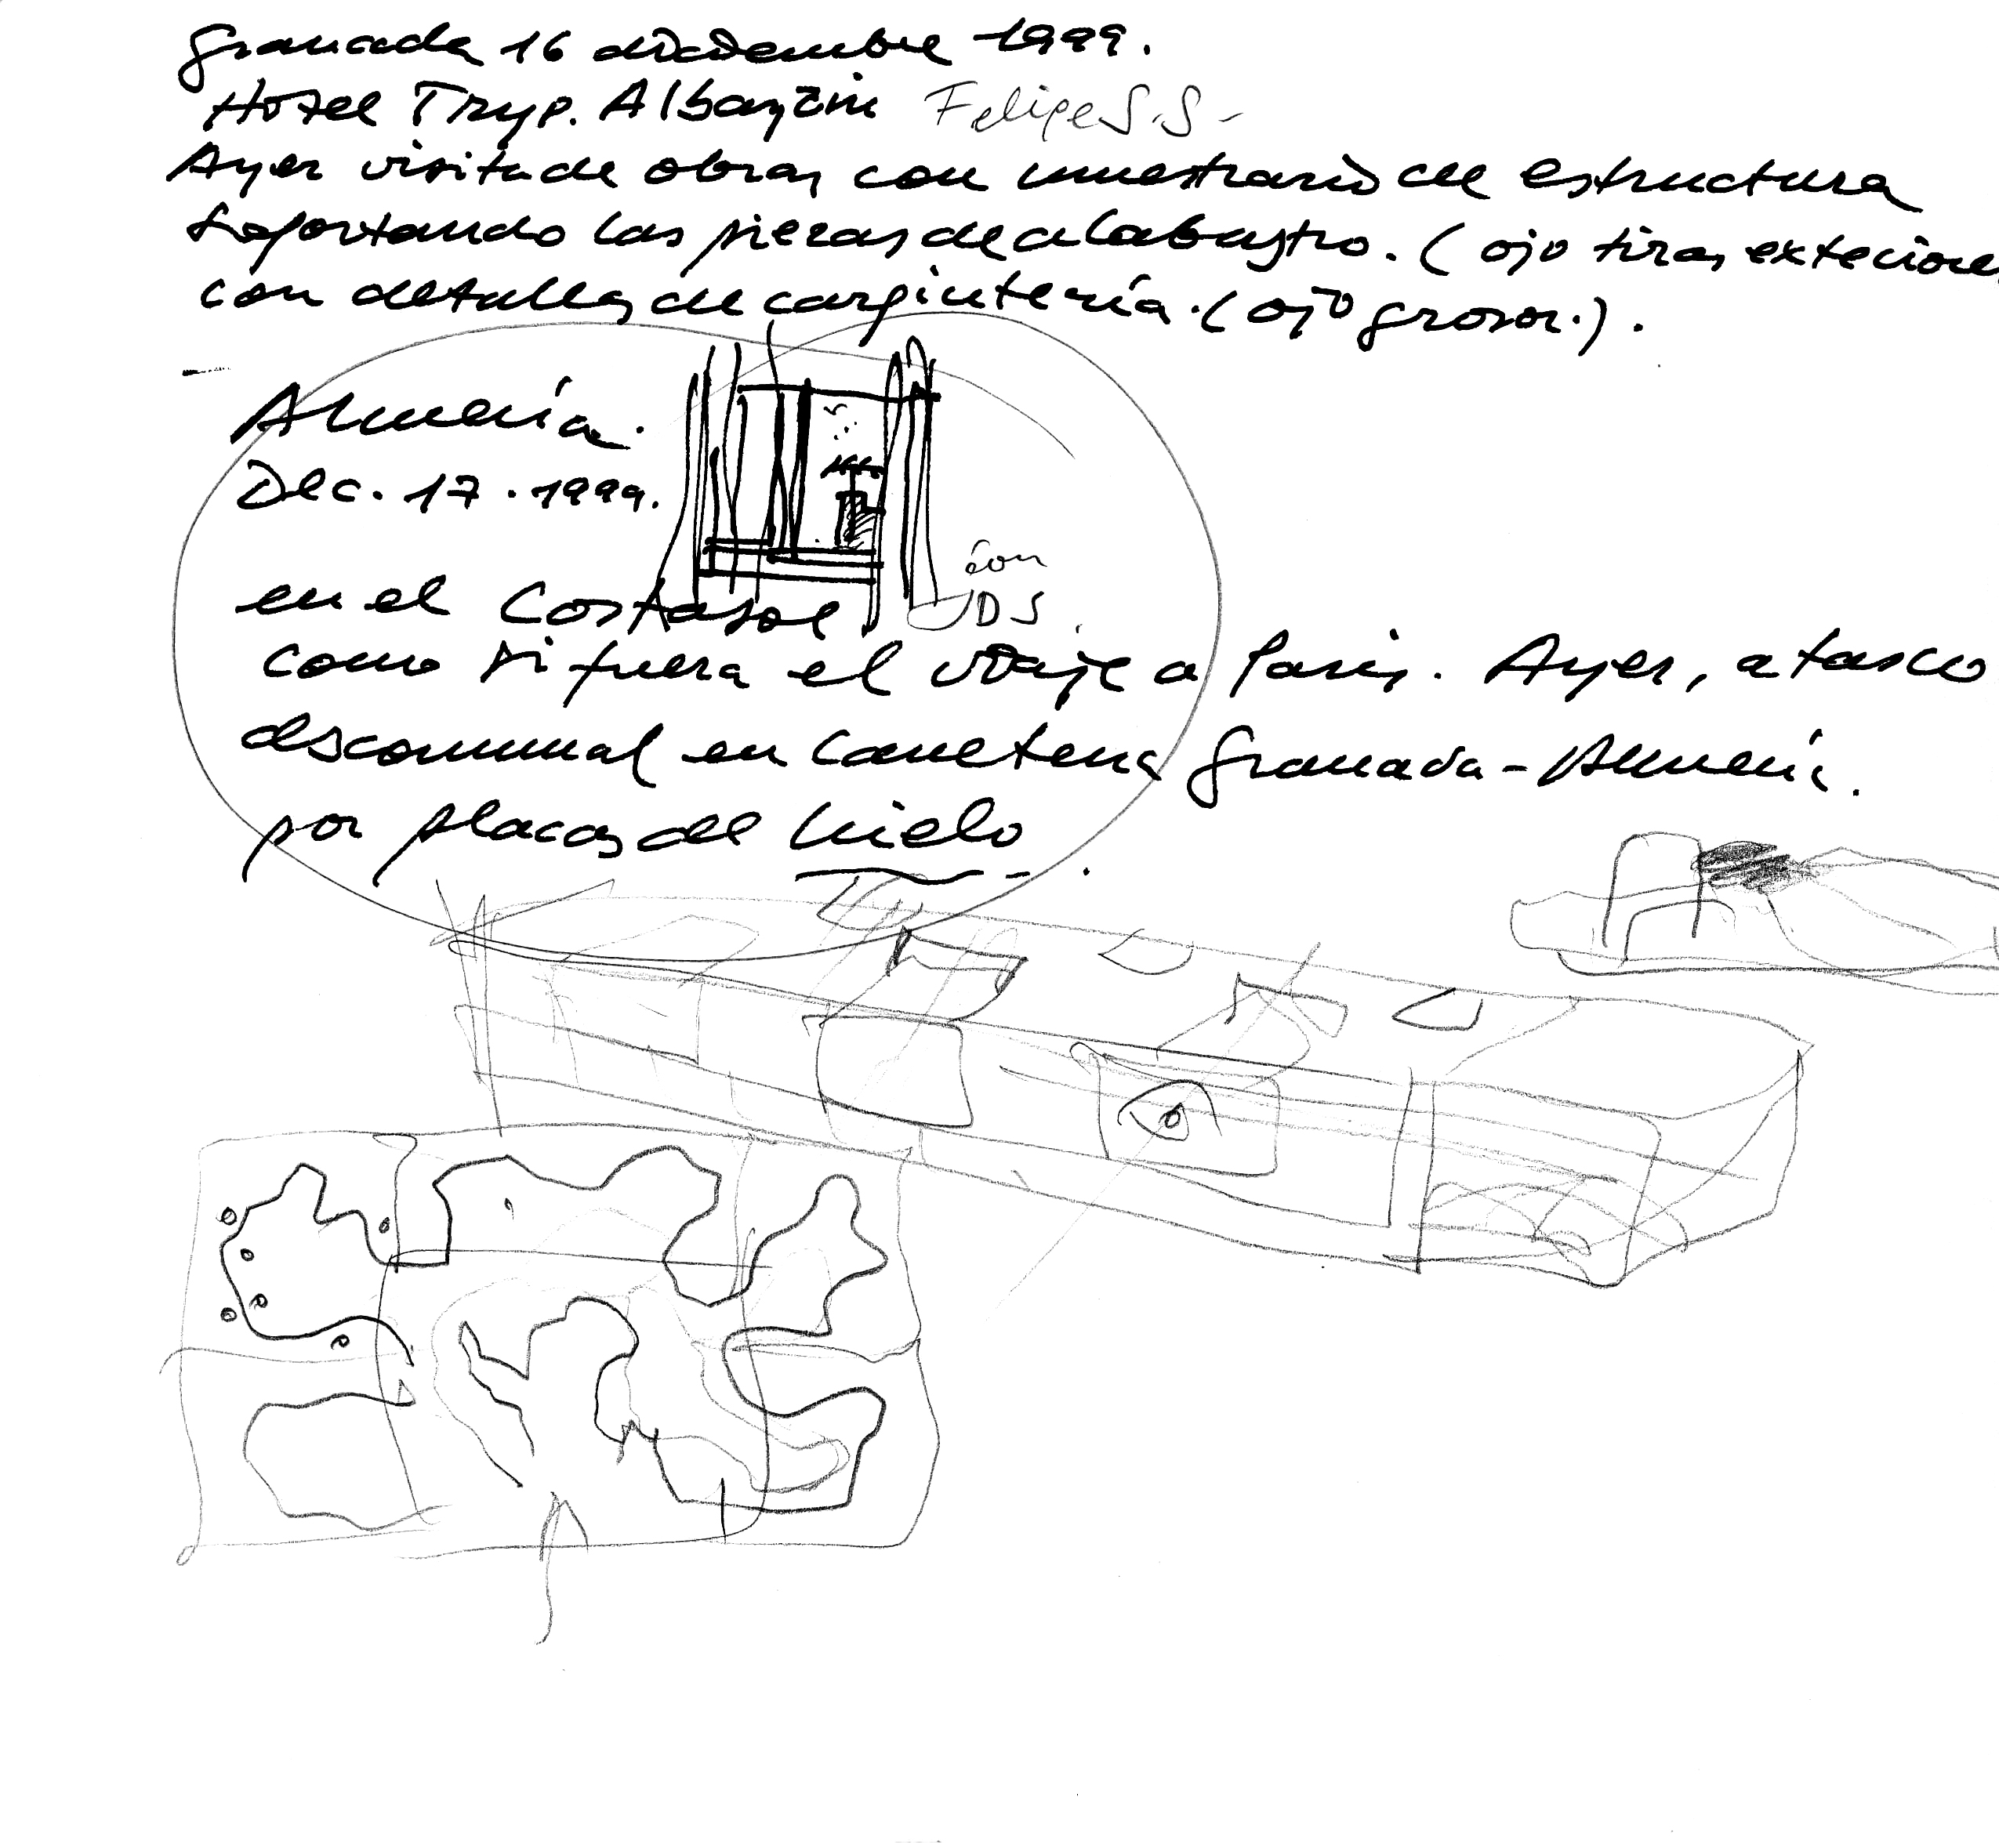 Granada 16 diciembre 1999.
Hotel Tryp. Albayzín Felipe S.S-
Ayer visita de obras con muestrario de estructura
soportando las piezas de alabastro. (ojo tiras exteriores
con detalles de carpintería. (ojo grosor.).
Almería.
Dec. 17. 1999.
con
JDS
en el Costasol
como si fuera el viaje a París. Ayer, atasco
descomunal en carretera Granada-Almería.
por placas del hielo.